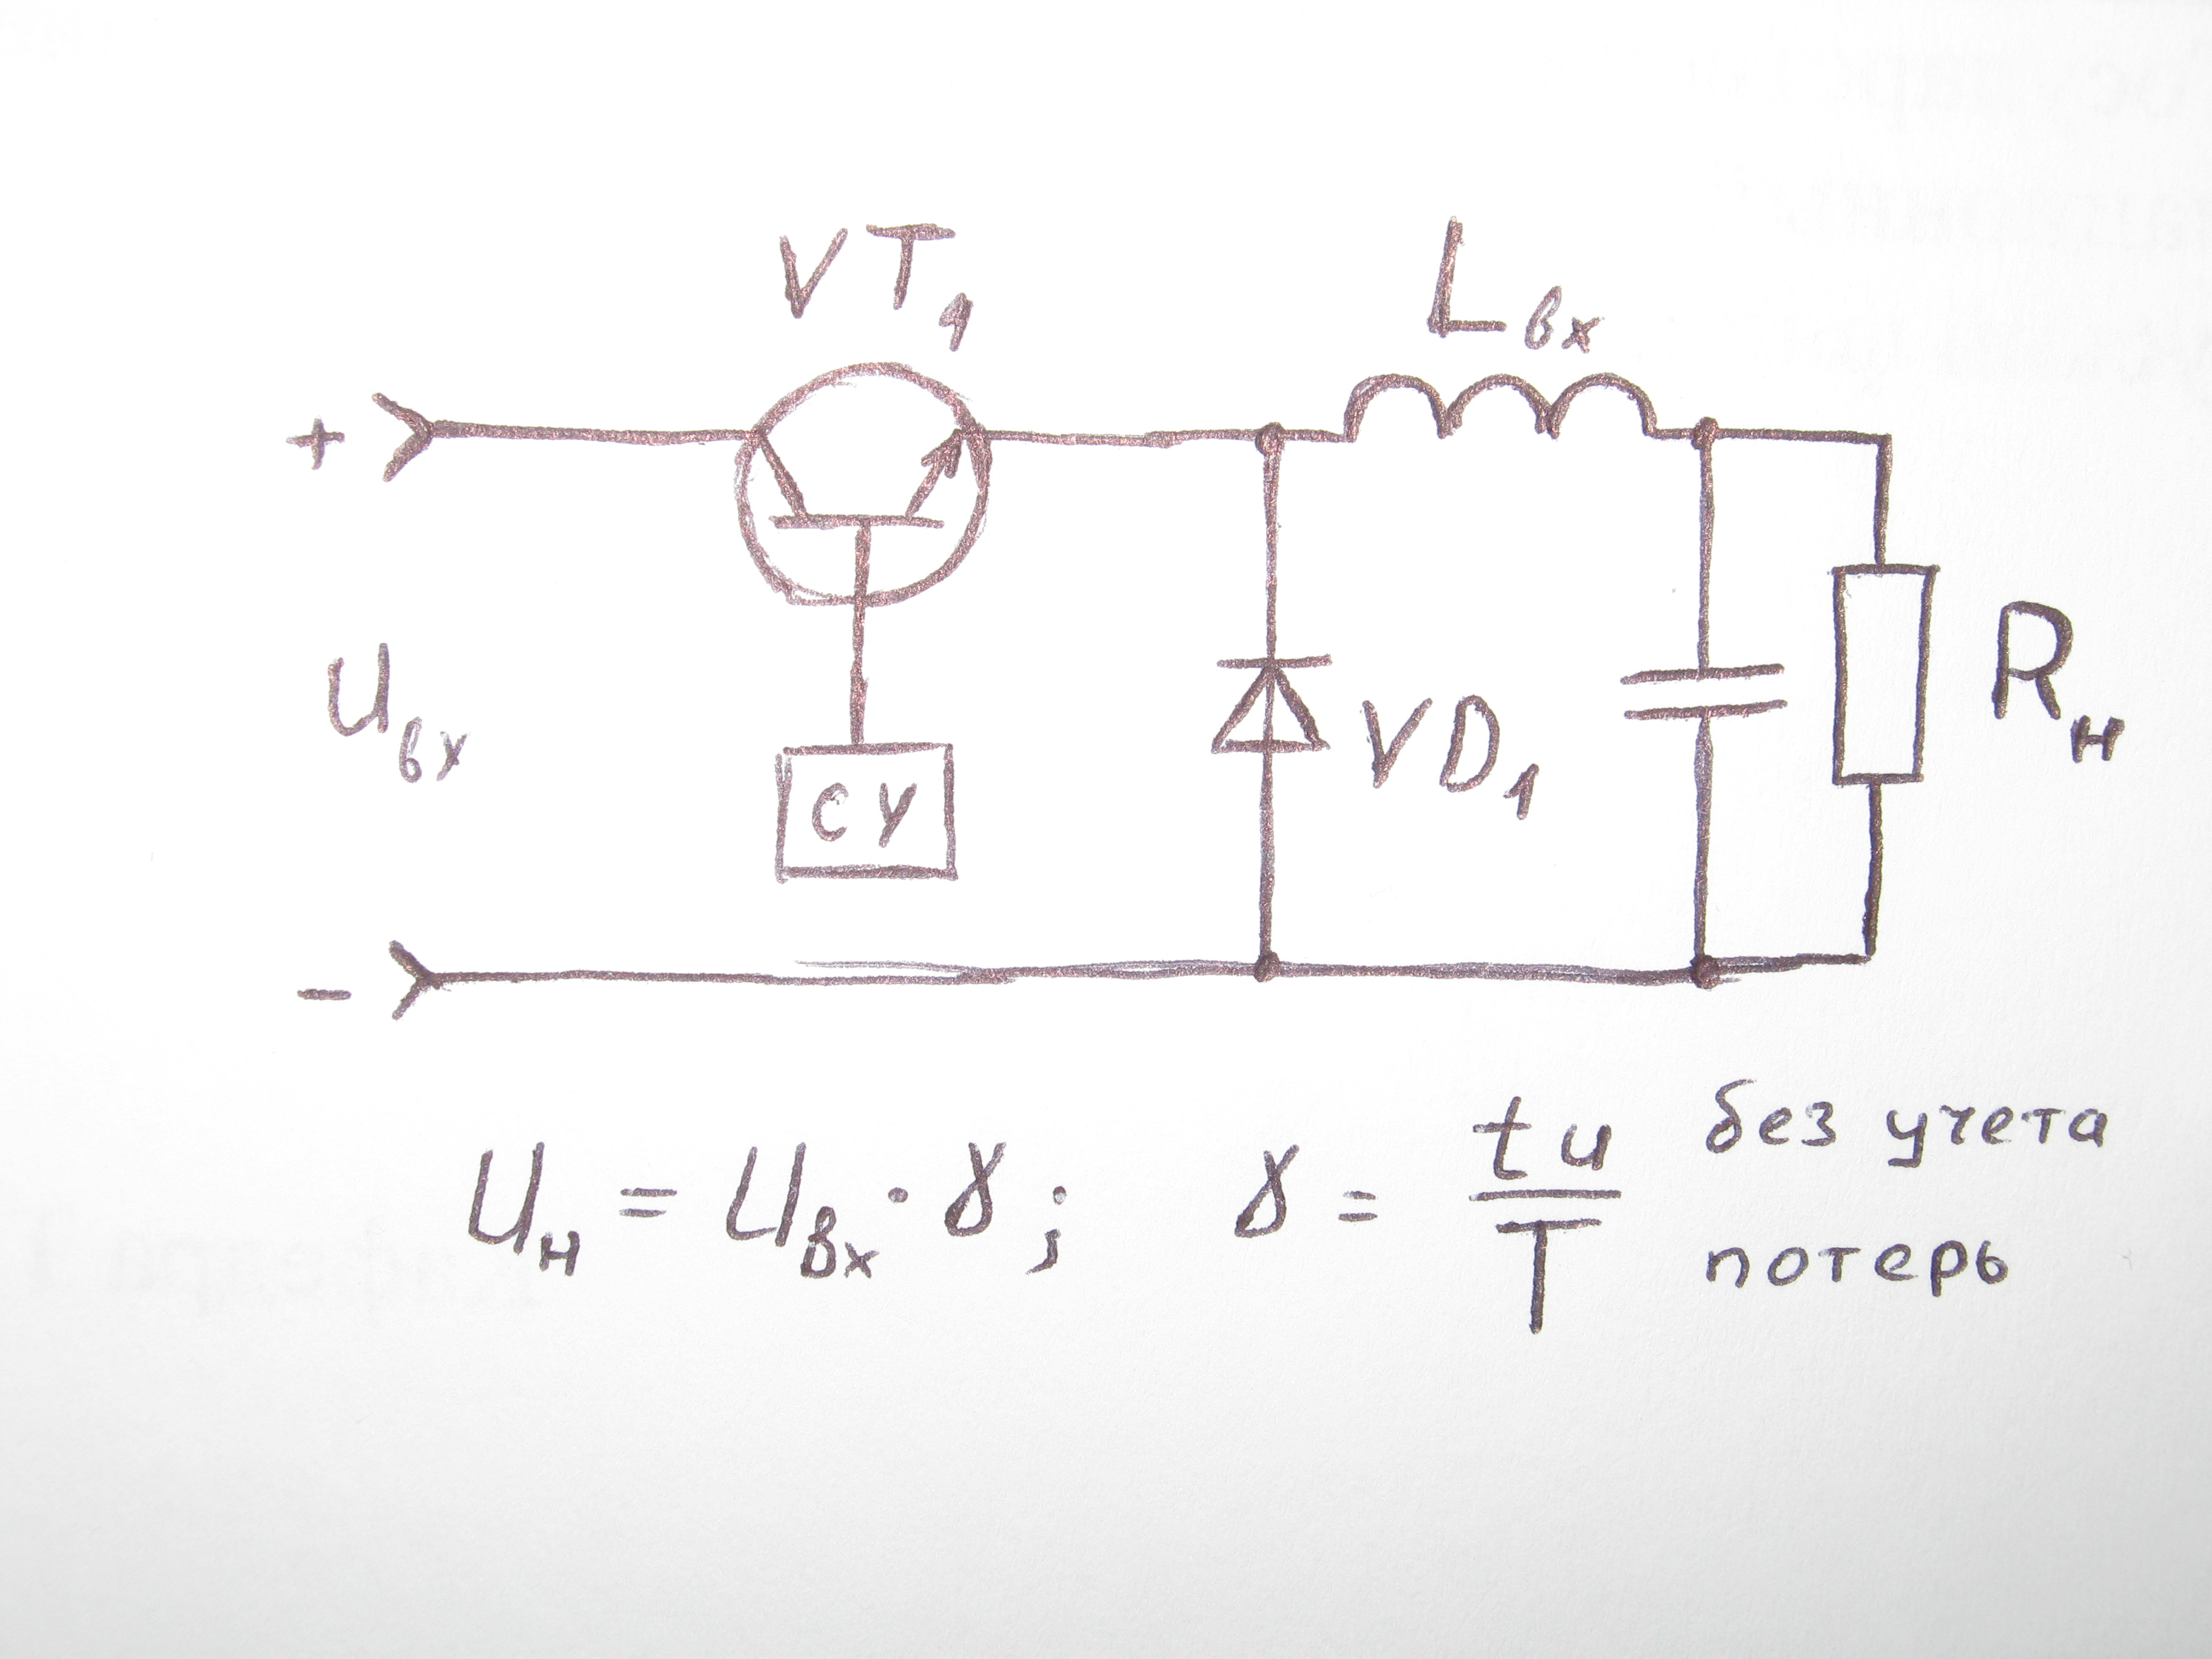 VT1
Lвх
+
Uвх
СУ
VD1
Rн
-
Uн = Uвх · γ; γ = tu/T без учета
потерь